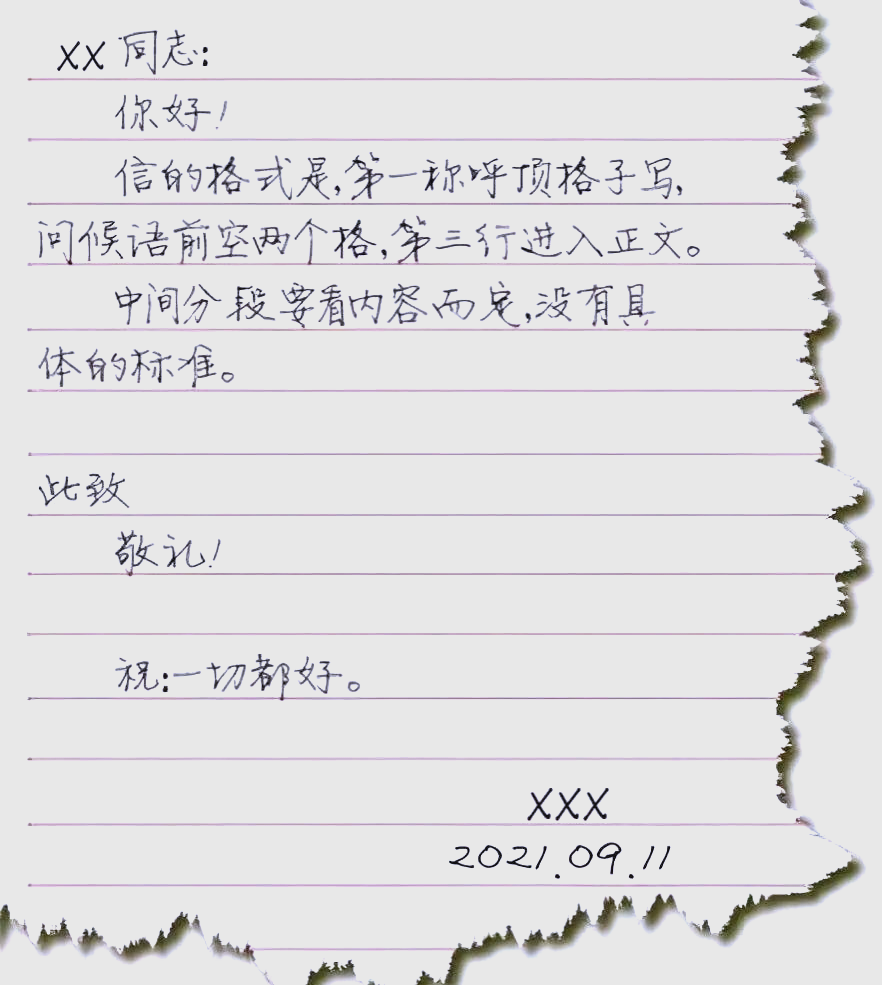 XX 同志:
你好!
信的格式是,第一称呼顶格子写,
问候语前空两个格,第三行进入正文。
中间分段要看内容而定,没有具
体的标准。
此致
敬礼!
祝:一切都好。
XXX
2021.09.11